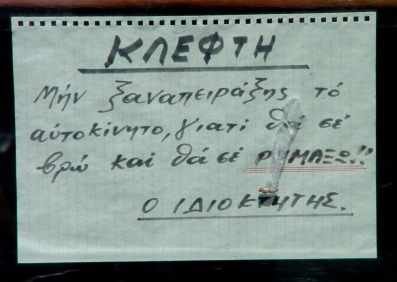 ΚΛΕΦΤΗ
Μήν ξαναπειράξης τό
αὐτοκίνητο, γιατί θά σέ
βρώ καί θά σέ ΡΗΜΑΞΩ!!
Ο ΙΔΙΟΚΤΗΤΗΣ.